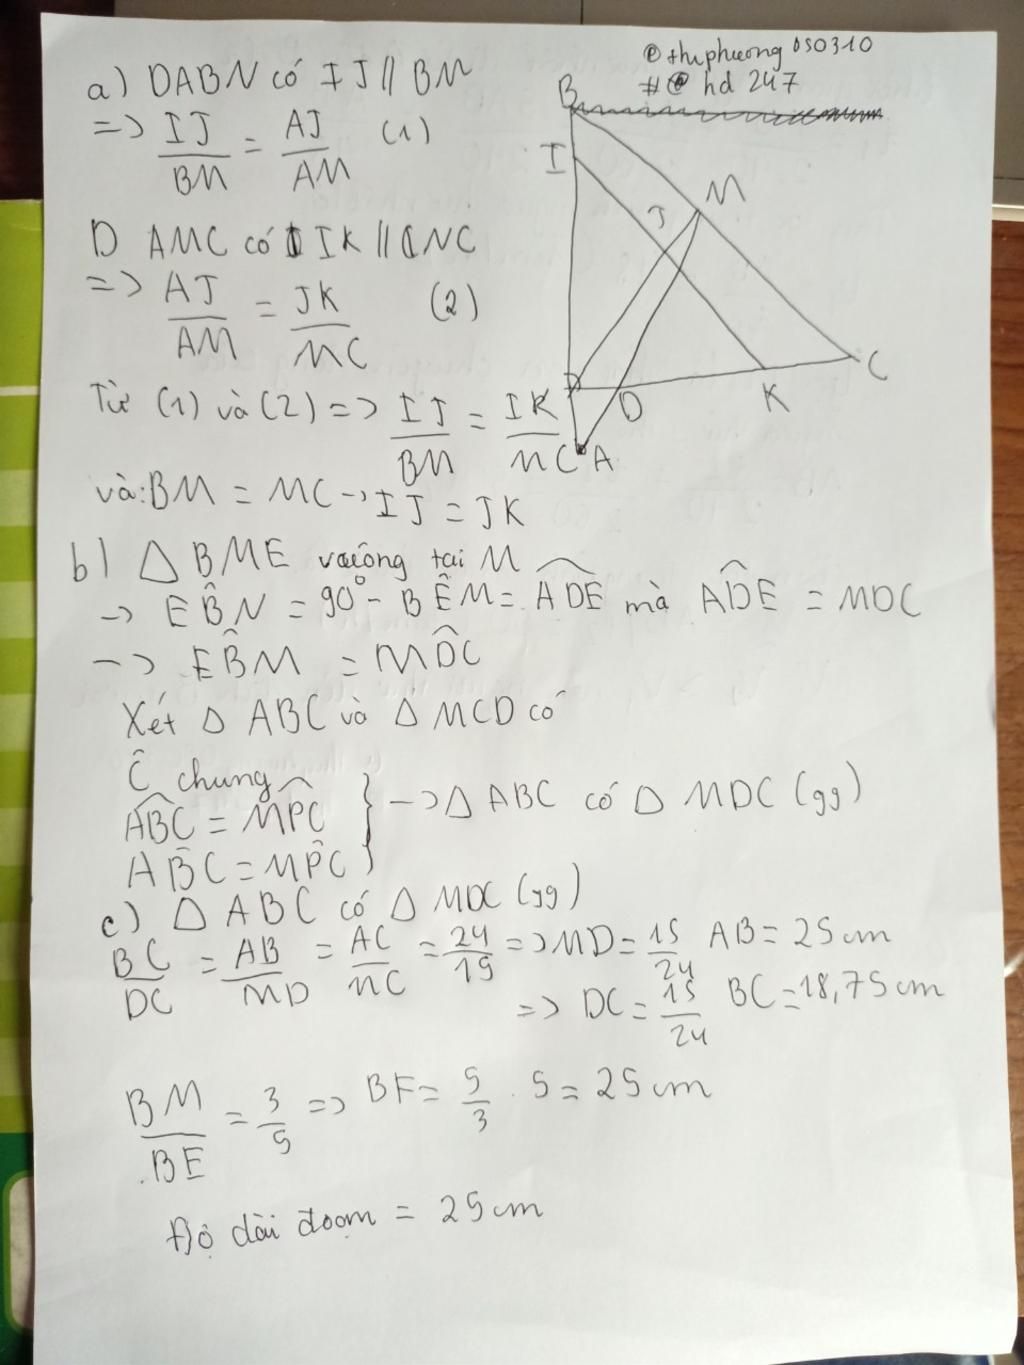 @thphuong050310
#@hd247
a) DABN có IJ // BM
=> IJ/BM = AJ/AM (1)
D AMC có IK // CNC
=> AJ/AM = JK/MC (2)
Từ (1) và (2) => IJ/BM = IK/MC
và: BM = MC -> IJ = JK
B
I
J
M
C
D
K
A
b) △ BME vuông tại M
-> EB̂N = 90° - BÊM = ADE mà AD̂E = MDC
-> EB̂M = MD̂C
Xét △ ABC và △ MCD có
Ĉ chung
ABC = MPC } -> △ ABC có △ MDC (gg)
AB̂C = MP̂C
c) △ ABC có △ MDC (gg)
BC/DC = AB/MD = AC/MC = 24/15 => MD = 15/24 AB = 25 cm
=> DC = 15/24 BC = 18,75 cm
BM/BE = 3/5 => BF = 5/3 . 5 = 25 cm
Độ dài đoạn = 25 cm